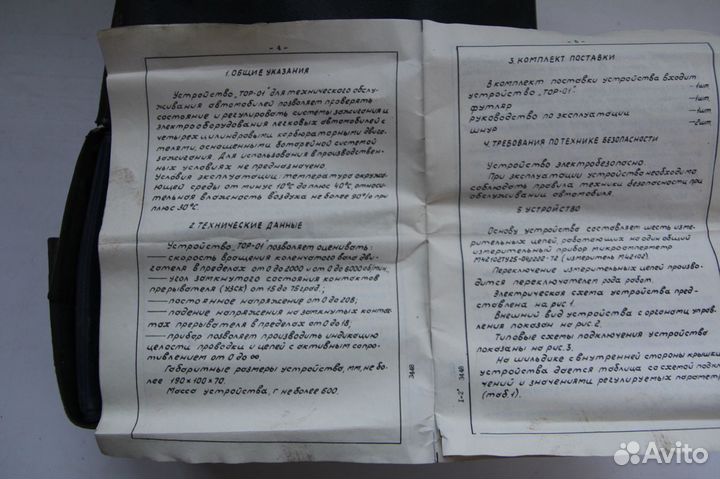 - 4 -
1. ОБЩИЕ УКАЗАНИЯ
Устройство „ТОР-01" для технического обслу-
живания автомобилей позволяет проверять
состояние и регулировать системы зажигания и
электрооборудования легковых автомобилей с
четырехцилиндровыми карбюраторными двига-
телями, оснощенными батарейной системой
зажигания. Для использования в производствен-
ных условиях не предназначено.
Условия эксплуатации: температура окружа-
ющей среды от минус 10°С до плюс 40°С, относи-
тельная влажность воздуха не более 90% при
плюс 30°С.
2. ТЕХНИЧЕСКИЕ ДАННЫЕ
Устройство „ТОР-01" позволяет оценивать:
— скорость вращения коленчатого вала дви-
гателя в пределах от 0 до 2000 и от 0 до 6000 об/мин,
— угол замкнутого состояния контактов
прерывателя (УЗСК) от 15 до 75 град.;
— постоянное напряжение от 0 до 20В;
— падение напряжения на замкнутых контак-
тах прерывателя в пределах от 0 до 1В;
— прибор позволяет производить индикацию
целости проводки и цепей с активным сопро-
тивлением от 0 до ∞.
Габаритные размеры устройства, мм, не бо-
лее 190×100×70.
Масса устройства, г не более 600.
3448
3. КОМПЛЕКТ ПОСТАВКИ
В комплект поставки устройства входит
устройство „ТОР-01" — 1шт.
футляр — 1шт.
руководство по эксплуатации — 1шт.
шнур — 2шт.
4. ТРЕБОВАНИЯ ПО ТЕХНИКЕ БЕЗОПАСНОСТИ
Устройство электробезопасно.
При эксплуатации устройства необходимо
соблюдать правила техники безопасности при
обслуживании автомобиля.
5. УСТРОЙСТВО
Основу устройства составляет шесть изме-
рительных цепей, работающих на один общий
измерительный прибор микроамперметр
(измеритель М42102).
Переключение измерительных цепей произво-
дится переключателем рода работ.
Электрическая схема устройства пред-
ставлена на рис 1.
Внешний вид устройства с органами управ-
ления показан на рис 2.
Типовые схемы подключения устройства
показаны на рис 3.
На шильдике с внутренней стороны крышки
устройства дается таблица со схемой подклю-
чений и значениями регулируемых параметр
(таб.1).
1-2* 3448
Avito